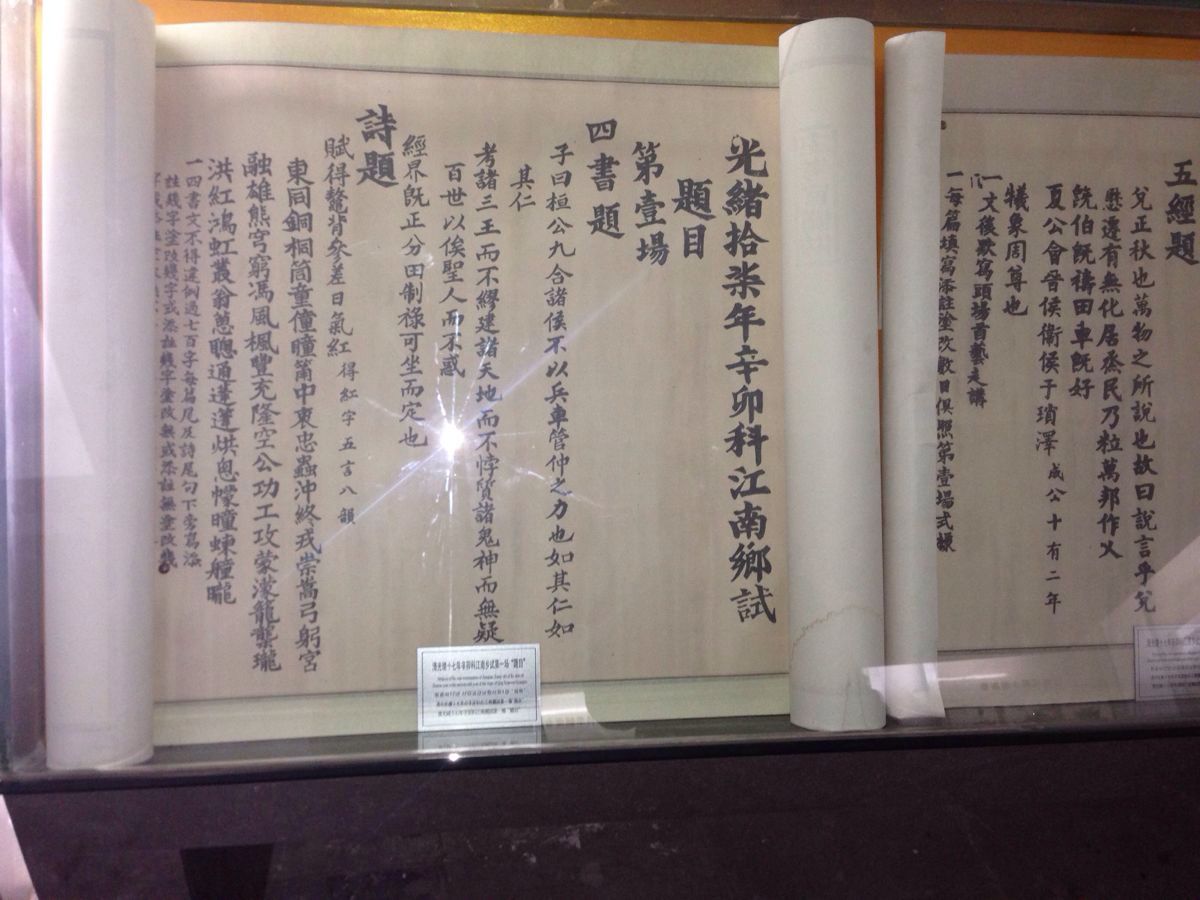 五經題
兌正秋也萬物之所說也故曰說言乎兌
懋遷有無化居烝民乃粒萬邦作乂
既伯既禱田車既好
夏公會晉侯衞侯于瑣澤 成公十有二年
犧象周尊也
一文後歇寫頭場首藝走講
一每篇填寫添註塗改數目俱照第壹場式樣
光緒拾柒年辛卯科江南鄉試
題目
第壹場
四書題
子曰桓公九合諸侯不以兵車管仲之力也如其仁如
其仁
考諸三王而不繆建諸天地而不悖質諸鬼神而無疑
百世以俟聖人而不惑
經界既正分田制祿可坐而定也
詩題
賦得鼇背參差日氣紅 得紅字五言八韻
東同銅桐筒童僮瞳筩中衷忠蟲沖終戎崇嵩弓躬宮
融雄熊穹窮馮風楓豐充隆空公功工攻蒙濛籠龔瓏
洪紅鴻虹叢翁蔥聰通蓬篷烘恖幪曈蝀艟朧
一四書文不得違例過七百字每篇尾及詩尾句下旁寫添
註幾字塗改幾字或添註幾字塗改無或添註無塗改幾
清光绪十七年辛卯科江南乡试第一场“题目”